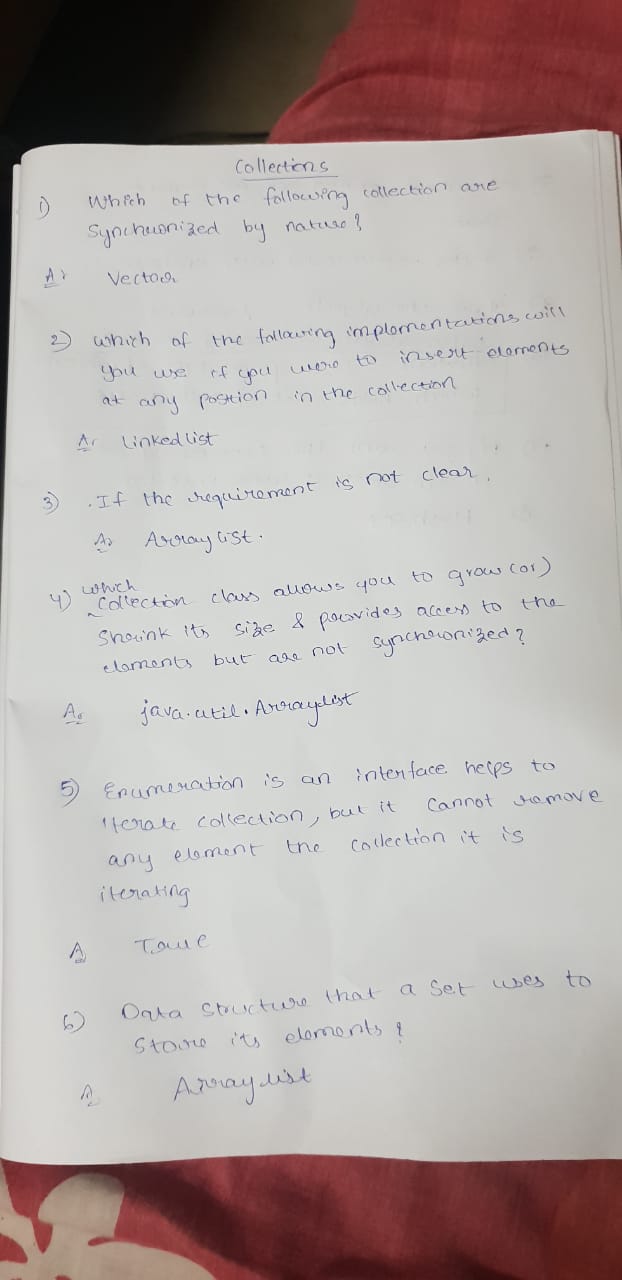 Collections
1) Which of the following collection are
Synchronized by nature?
A: Vector
2) which of the following implementations will
you use if you were to insert elements
at any position in the collection
A: Linkedlist
3) . If the requirement is not clear.
A: Arraylist.
4) which
Collection class allows you to grow (or)
Shrink its size & provides access to the
elements but are not synchronized?
A: java.util.Arraylist
5) Enumeration is an interface helps to
iterate collection, but it cannot remove
any element the collection it is
iterating
A True
6) Data Structure that a Set uses to
Store its elements?
A Arraylist